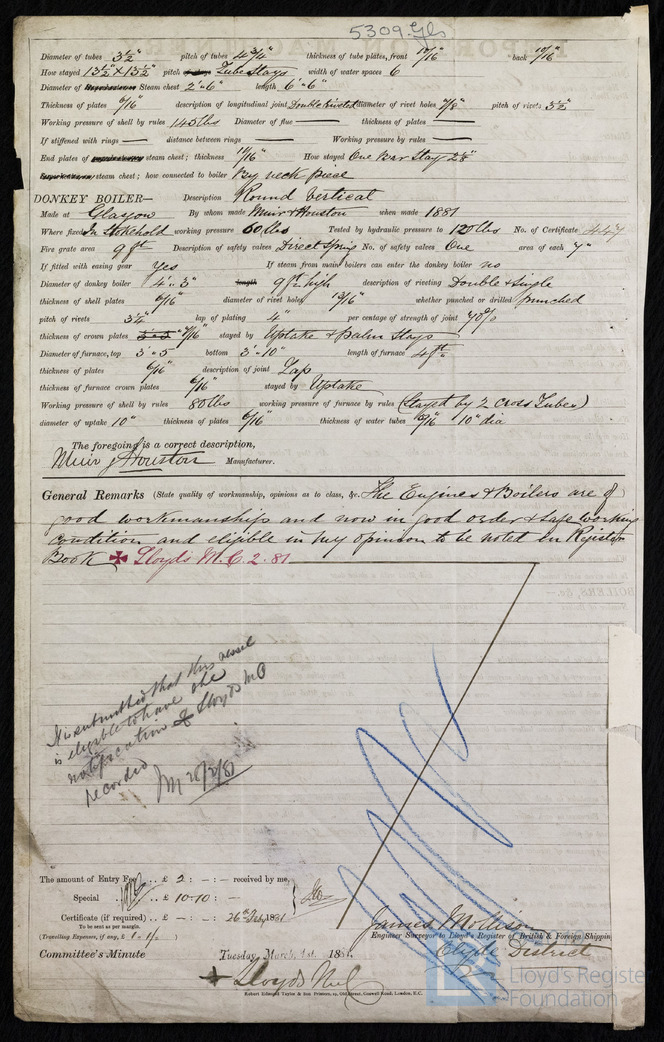 5309 Gls
Diameter of tubes 3½" pitch of tubes 4¾" thickness of tube plates, front 13/16" back 10/16"
How stayed 13½" x 13½" pitch Tube Stays width of water spaces 6
Diameter of Steam chest 2'-6" length 6'-6"
Thickness of plates 6/16" description of longitudinal joint Double riveted diameter of rivet holes 7/8" pitch of rivets 3½"
Working pressure of shell by rules 145 lbs Diameter of flue — thickness of plates —
If stiffened with rings — distance between rings — Working pressure by rules —
End plates of steam chest; thickness 11/16" How stayed One Bar Stay 28"
steam chest; how connected to boiler By neck piece
DONKEY BOILER— Description Round Vertical
Made at Glasgow By whom made Muir & Houston when made 1881
Where fixed In Stokehold working pressure 60 lbs Tested by hydraulic pressure to 120 lbs No. of Certificate 447
Fire grate area 9 ft Description of safety valves Direct Spring No. of safety valves One area of each 7"
If fitted with easing gear Yes If steam from main boilers can enter the donkey boiler no
Diameter of donkey boiler 4'-3" length 9 ft high description of riveting Double & Single
thickness of shell plates 6/16" diameter of rivet holes 13/16" whether punched or drilled punched
pitch of rivets 3¼" lap of plating 4" per centage of strength of joint 70%
thickness of crown plates 7/16" stayed by Uptake & Palm Stays
Diameter of furnace, top 3'-5" bottom 3'-10" length of furnace 4 ft
thickness of plates 6/16" description of joint Lap
thickness of furnace crown plates 6/16" stayed by Uptake
Working pressure of shell by rules 80 lbs working pressure of furnace by rules (Stayed by 2 Cross Tubes)
diameter of uptake 10" thickness of plates 6/16" thickness of water tubes 6/16" 10" dia
The foregoing is a correct description,
Muir & Houston Manufacturer.
General Remarks (State quality of workmanship, opinions as to class, &c. The Engines & Boilers are of
good workmanship and now in good order & safe working
condition and eligible in my opinion to be noted in Register
Book ✠ Lloyds M.C. 2.81
It is submitted that this vessel
is eligible to have the
notification ✠ Lloyds MC
recorded
28/2/81
The amount of Entry Fee .. £ 2 : – : – received by me,
Special .. £ 10·10 : –
Certificate (if required) .. £ – : – : 26th Feb, 1881
To be sent as per margin.
(Travelling Expenses, if any, £ 1·1/ )
James Mollison
Engineer Surveyor to Lloyd's Register of British & Foreign Shipping
Clyde District
Committee's Minute Tuesday, March 1st 1881.
+ Lloyds M.C.
Robert Edmund Taylor & Son Printers, 19, Old Street, Goswell Road, London, E.C.
Lloyd's Register
Foundation